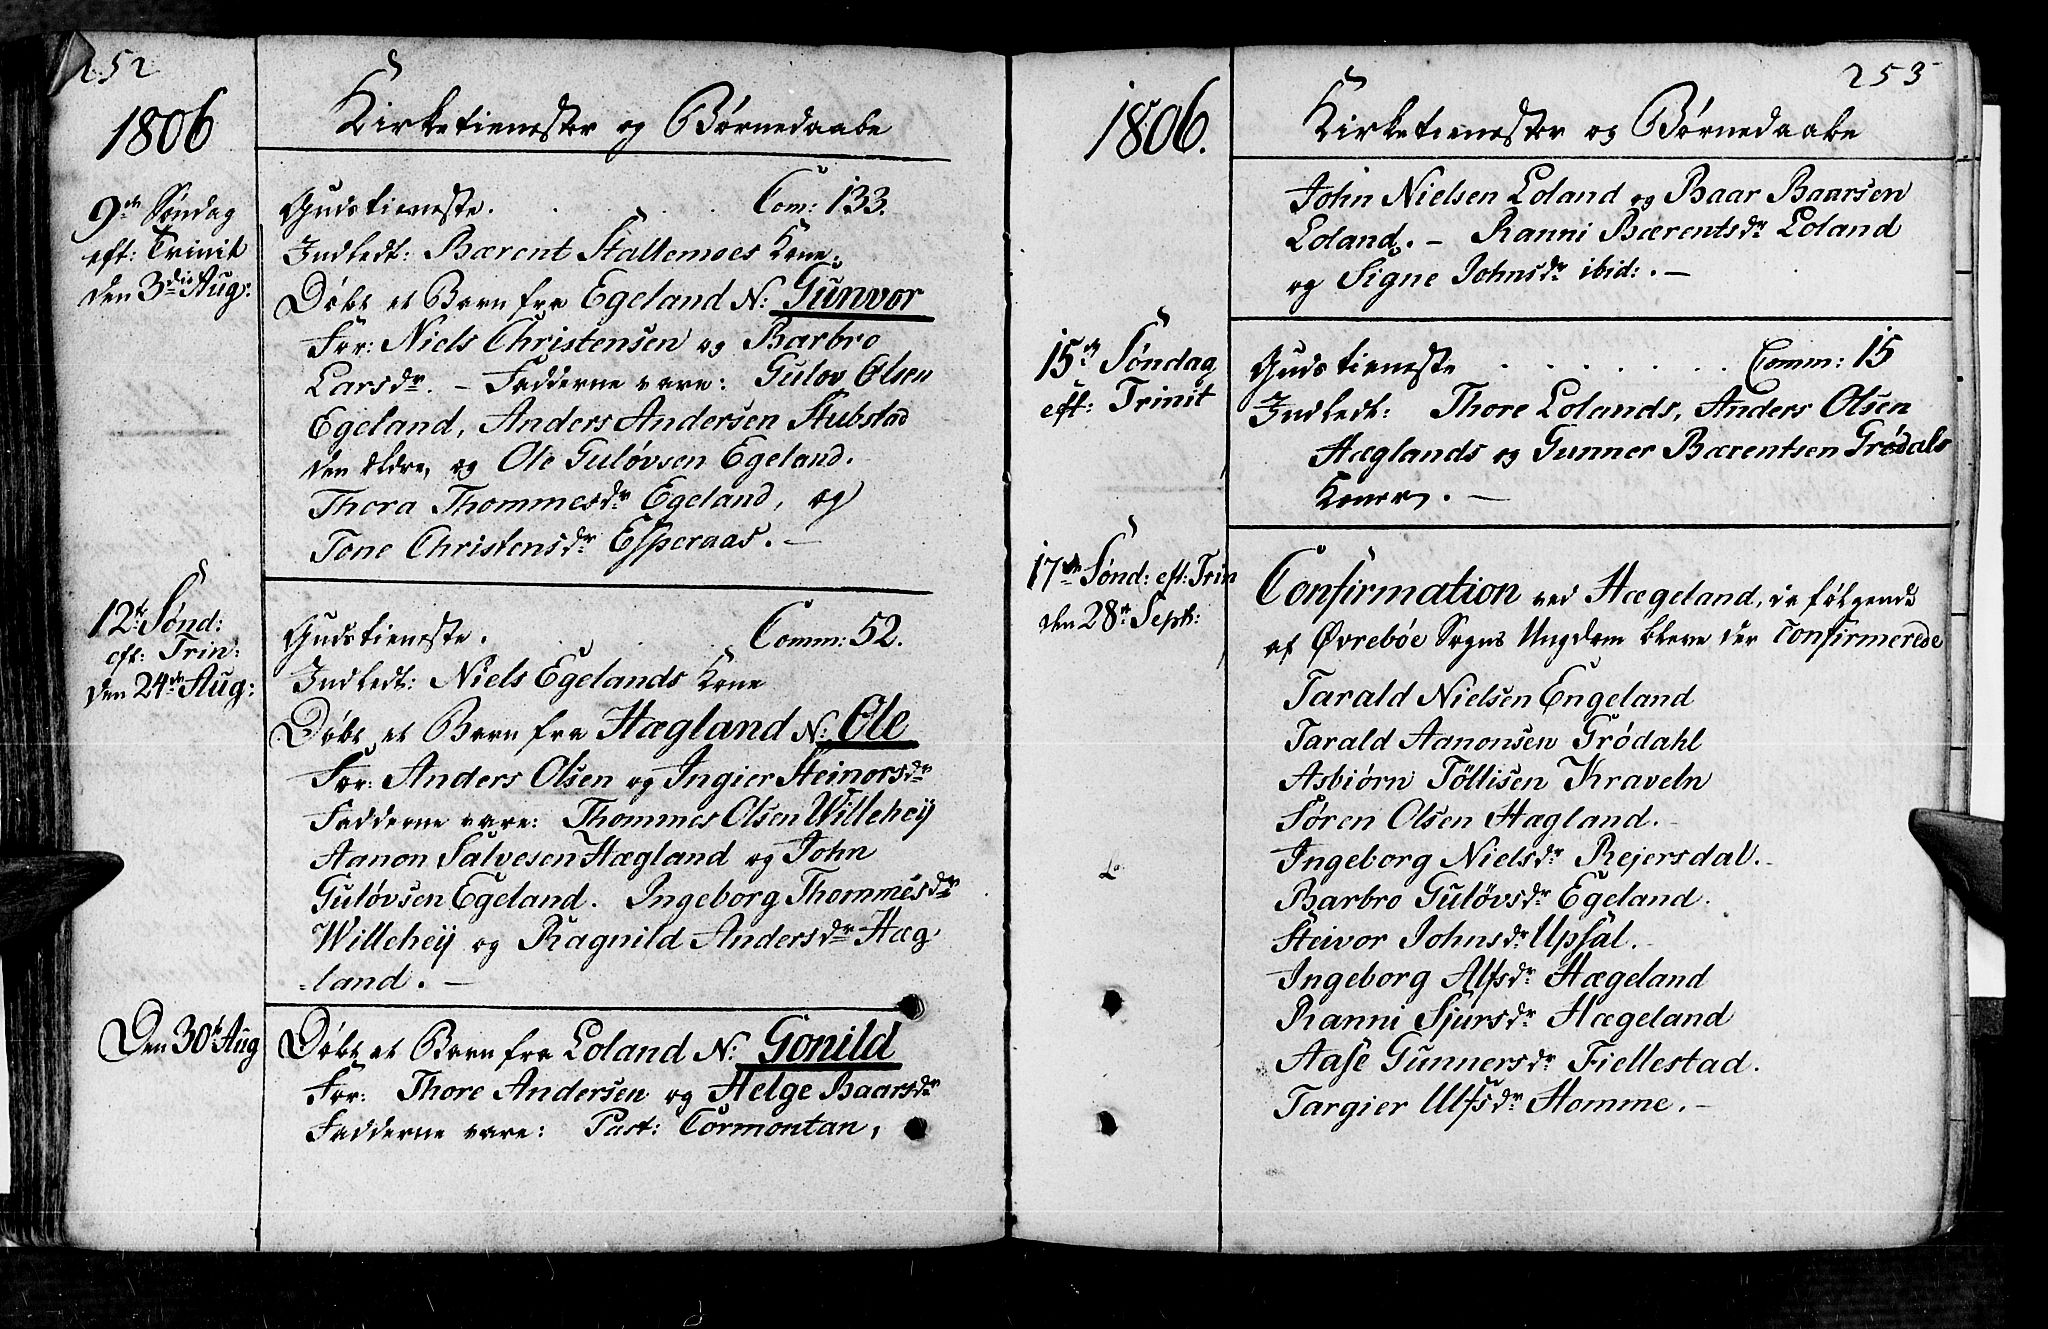 252
1806
Kirketienester og Børnedaabe
9de Søndag
eft: Trinit
den 3die Aug:
Gudstieneste. Com: 133.
Indledt: Bærent Stallemoes Kone.
Døbt et Barn fra Egeland N: Gunvor
For: Niels Christensen og Barbro
Larsdr. – Fadderne vare: Gulov Olsen
Egeland, Anders Andersen Stubstad
den ældre, og Ole Guløvsen Egeland.
Thora Thommesdr Egeland, og
Tone Christensdr Esperaas. –
12te Sønd:
eft: Trin:
den 24de Aug:
Gudstieneste. Comm: 52.
Indledt: Niels Egelands Kone
Døbt et Barn fra Hægland N: Ole
For: Anders Olsen og Ingier Steinorsdr
Fadderne vare: Thommes Olsen Willeheij
Aanon Salvesen Hægland og John
Guløvsen Egeland. Ingeborg Thommesdr
Willeheij og Ragnild Andersdr Hæg
land. –
Den 30te Aug
Døbt et Barn fra Loland N: Gonild
For: Thore Andersen og Helge Baarsdr
Fadderne vare: Past: Cormontan,
253
1806.
Kirketienester og Børnedaabe
John Nielsen Loland og Baar Baarsen
Loland. – Ranni Bærentsdr Loland
og Signe Johnsdr ibid: . –
15de Søndag
eft: Trinit
Gudstieneste Comm: 15
Indledt: Thore Lolands, Anders Olsen
Hæglands og Gunner Bærentsen Grødals
Koner. –
17de Sønd: eft: Trin
den 28de Sept:
Confirmation ved Hægeland, de følgende
af Øvrebøe Sogns Ungdom bleve der Confirmerede
Tarald Nielsen Engeland
Tarald Aanonsen Grødahl
Asbiørn Tøllisen Kraveln
Søren Olsen Hægland.
Ingeborg Nielsdr Rejersdal. –
Barbro Guløvsdr Egeland.
Steivor Johnsdr Upsal. –
Ingeborg Alfsdr Hægeland
Ranni Sjursdr Hægeland
Aase Gunnersdr Fiellestad.
Targier Ulfsdr Homme. –